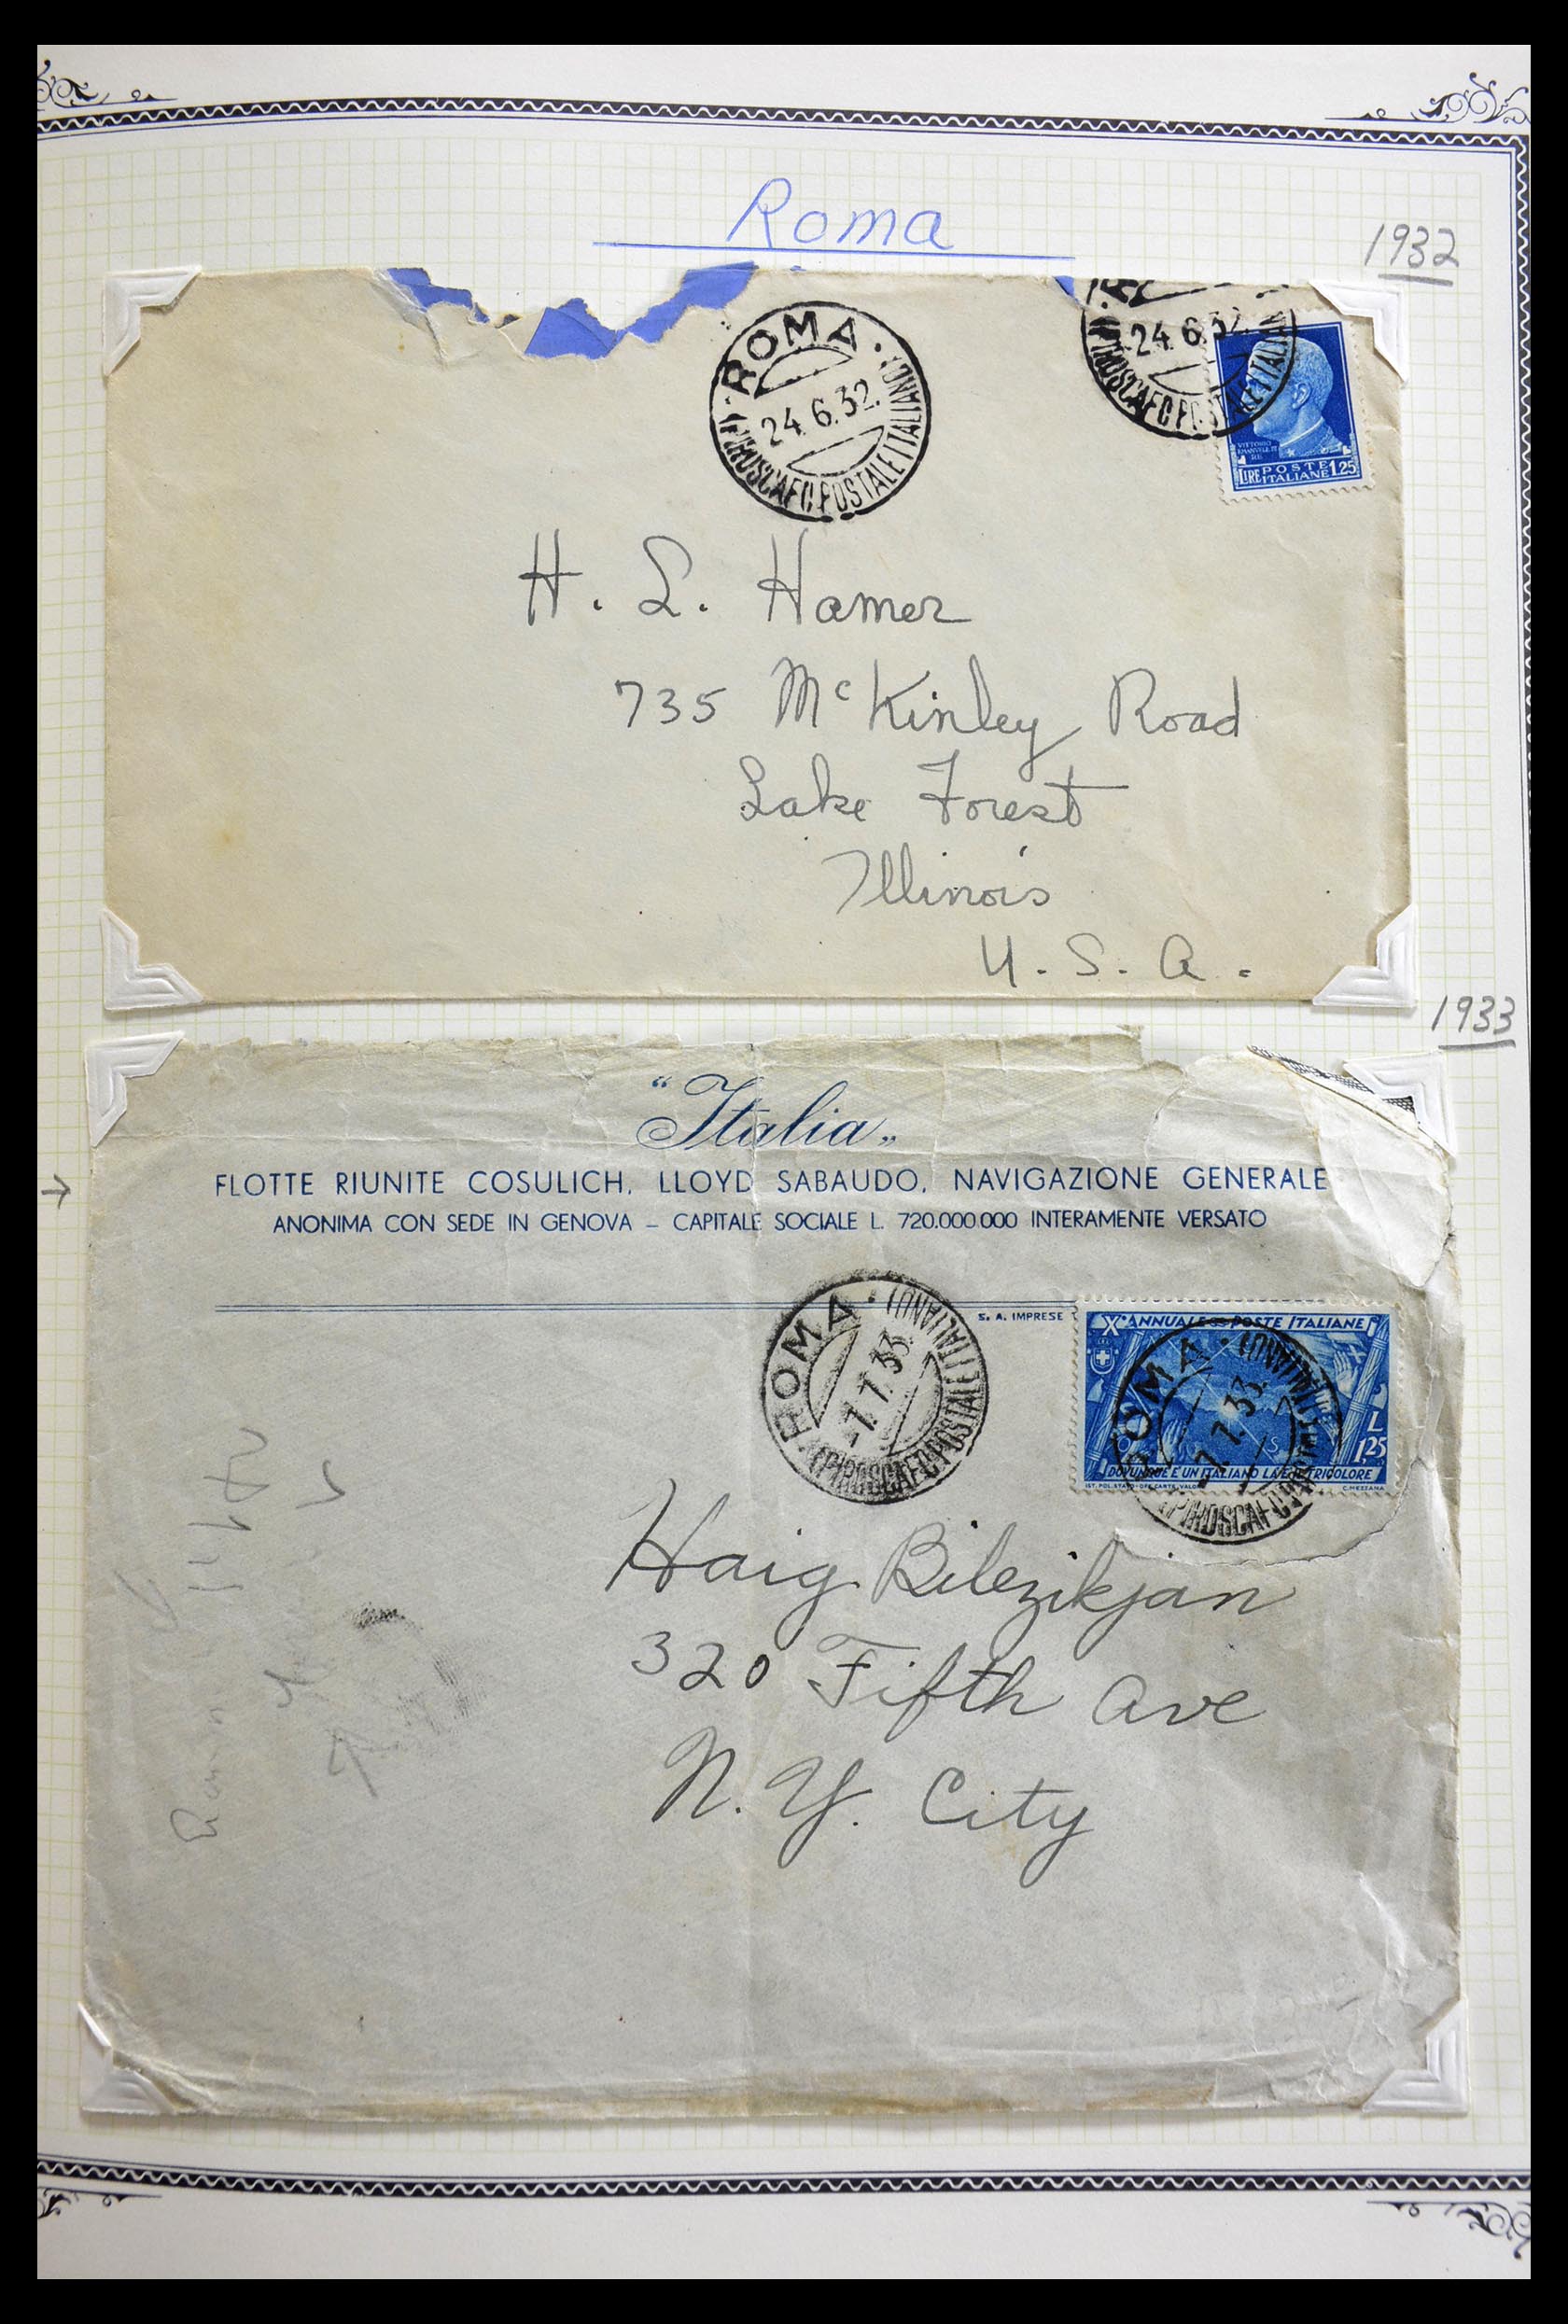 Roma
1932
ROMA
24.6.32
(PIROSCAFO POSTALE ITALIANO)
24.6.32
(PIROSCAFO POSTALE ITALIANO)
VITTORIO
EMANUELE III
RE
LIRE POSTE ITALIANE 1.25
H. L. Hamer
735 McKinley Road
Lake Forest
Illinois
U. S. A.
1933
"Italia„
FLOTTE RIUNITE COSULICH, LLOYD SABAUDO, NAVIGAZIONE GENERALE
ANONIMA CON SEDE IN GENOVA – CAPITALE SOCIALE L. 720.000.000 INTERAMENTE VERSATO
S. A. IMPRESE
ROMA
-1.7.33.
(PIROSCAFO POSTALE ITALIANO)
X° ANNUALE POSTE ITALIANE
L
1,25
DOVUNQUE È UN ITALIANO LÀ È IL TRICOLORE
IST. POL. STATO-OFF. CARTE-VALORI
C. MEZZANA
ROMA
-1.7.33.
(PIROSCAFO POSTALE ITALIANO)
Haig Bilezikjan
320 Fifth Ave
N. Y. City